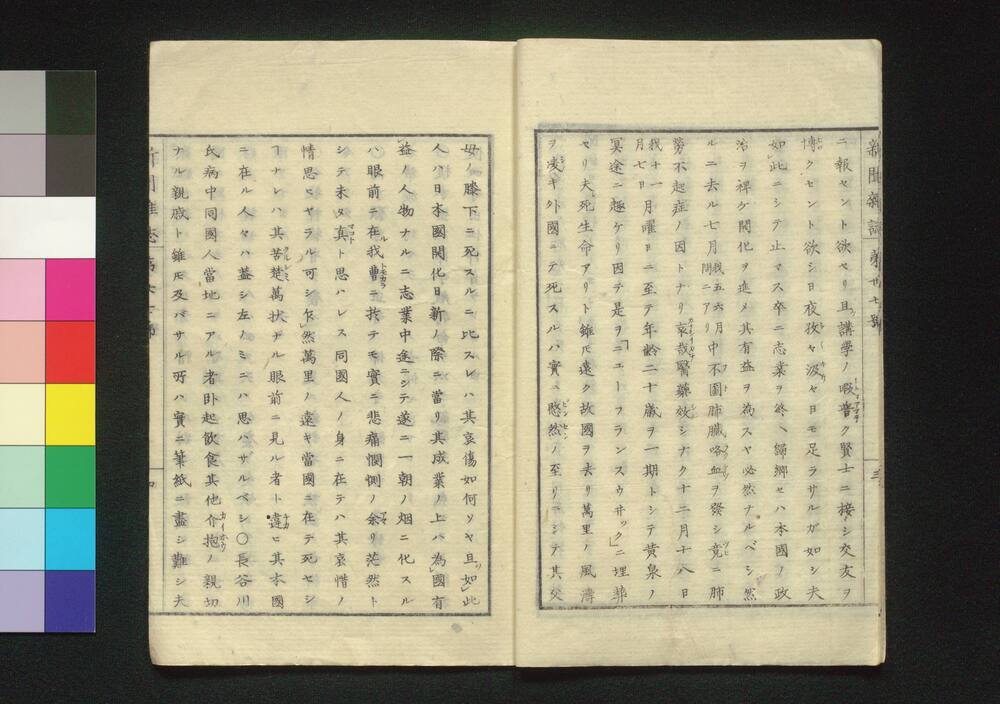 新聞雜誌 第卅七號
ニ報セント欲セリ且ツ講學ノ暇普ク賢士ニ接シ交友ヲ
博クセント欲シ日夜孜々汲々ヤヨモ足ラサルガ如シ夫
如此ニシテ止マス卒ニ志業ヲ終ヘ歸鄉セハ本國ノ政
治ヲ裨ケ開化ヲ進メ其有益ヲ為スヤ必然ナルベシ然
ルニ去ル七月我五六月中間ニアリ不圖肺臟咯血ヲ發シ竟ニ肺
勞不起症ノ因トナリ哀哉醫藥效シナク十二月十八日
我十一月七日月曜日ニ至テ年齡二十歲ヲ一期トシテ黄泉ノ
冥途ニ趣ケリ因テ是ヲ「ニユーブランスウ井ック」ニ埋葬
セリ夫死生命アリト雖モ遠ク故國ヲ去リ萬里ノ風濤
ヲ凌キ外國ニテ死スルハ實ニ愍然ノ至リニシテ其父
母ノ膝下ニ死スルニ比スレハ其哀傷如何ソヤ且ツ如此
人ハ日本國開化日新ノ際ニ當リ其成業ノ上ハ為國有
益ノ人物ナルニ志業中途ニシテ遂ニ一朝ノ烟ニ化スル
ハ眼前ニ在ル我曹ニ於テモ實ニ悲痛惻惻ノ余リ茫然ト
シテ未タ真ト思ハレス同國人ノ身ニ在テハ其哀惜ノ
情思ヒヤラル可シ乍然萬里ノ遠キ當國ニ在テ死セシ
ヿナレハ其苦楚萬狀ヂル眼前ニ見ル者ト違ヒ其本國
ニ在ル人々ハ蓋シ左ノミニハ思ハサルベシ○長谷川
氏病中同國人當地ニアル者臥起飲食其他介抱ノ親切
ナル親戚ト雖モ及バサル所ハ實ニ筆紙ニ盡シ難シ夫